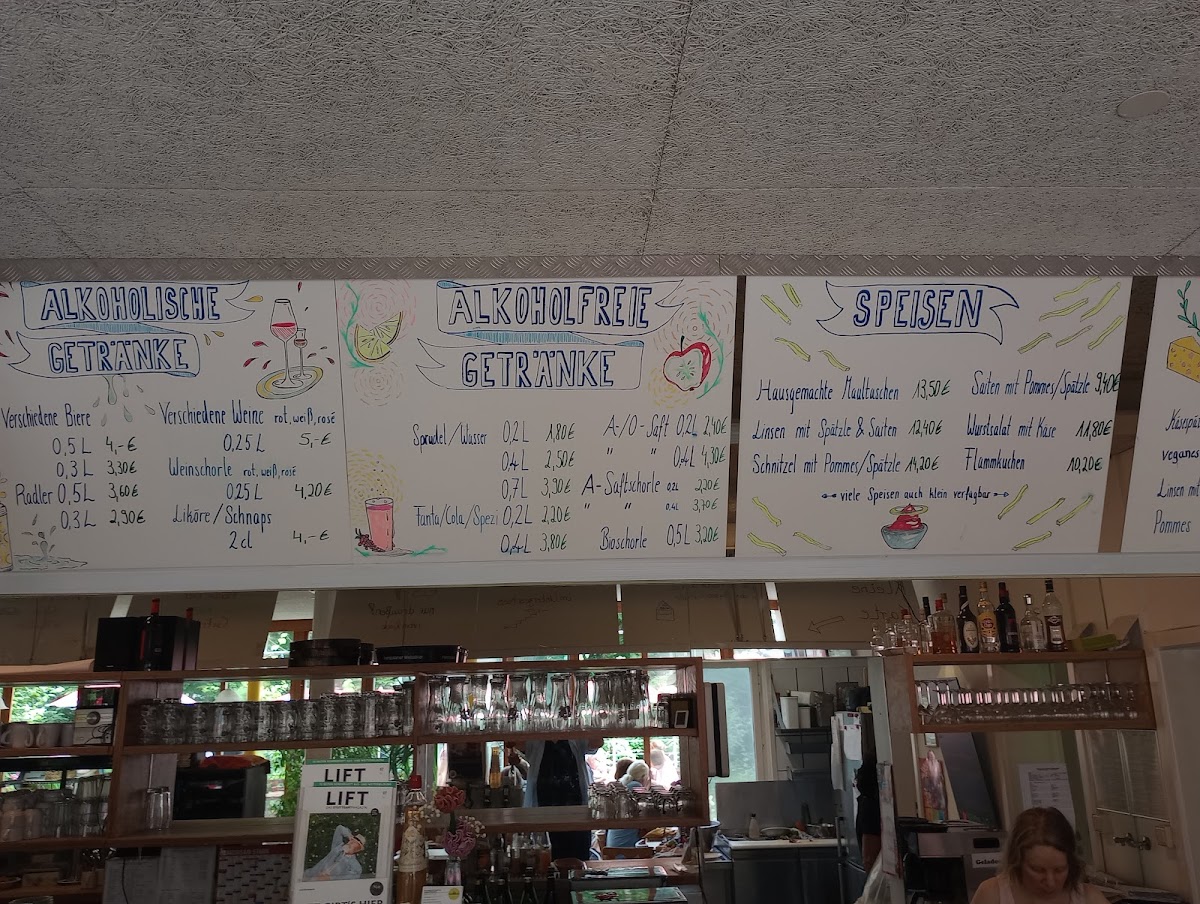 ALKOHOLISCHE
GETRÄNKE
Verschiedene Biere
0,5 L 4,-€
0,3 L 3,30€
Radler 0,5 L 3,60€
0,3 L 2,90€
Verschiedene Weine rot, weiß, rosé
0,25 L 5,-€
Weinschorle rot, weiß, rosé
0,25 L 4,20€
Liköre/Schnaps
2cl 4,-€
ALKOHOLFREIE
GETRÄNKE
Sprudel/Wasser 0,2 L 1,80€
0,4 L 2,50€
0,7 L 3,90€
Fanta/Cola/Spezi 0,2 L 2,20€
0,4 L 3,80€
A/O-Saft 0,2 L 2,40€
" " 0,4 L 4,30€
A-Saftschorle 0,2 L 2,20€
" " 0,4 L 3,70€
Bioschorle 0,5 L 3,20€
SPEISEN
Hausgemachte Maultaschen 13,50€
Linsen mit Spätzle & Saiten 12,40€
Schnitzel mit Pommes/Spätzle 14,20€
Saiten mit Pommes/Spätzle 9,40€
Wurstsalat mit Käse 11,80€
Flammkuchen 10,20€
viele Speisen auch klein verfügbar
Käsespät
veganes
Linsen mit
Pommes
LIFT
LIFT